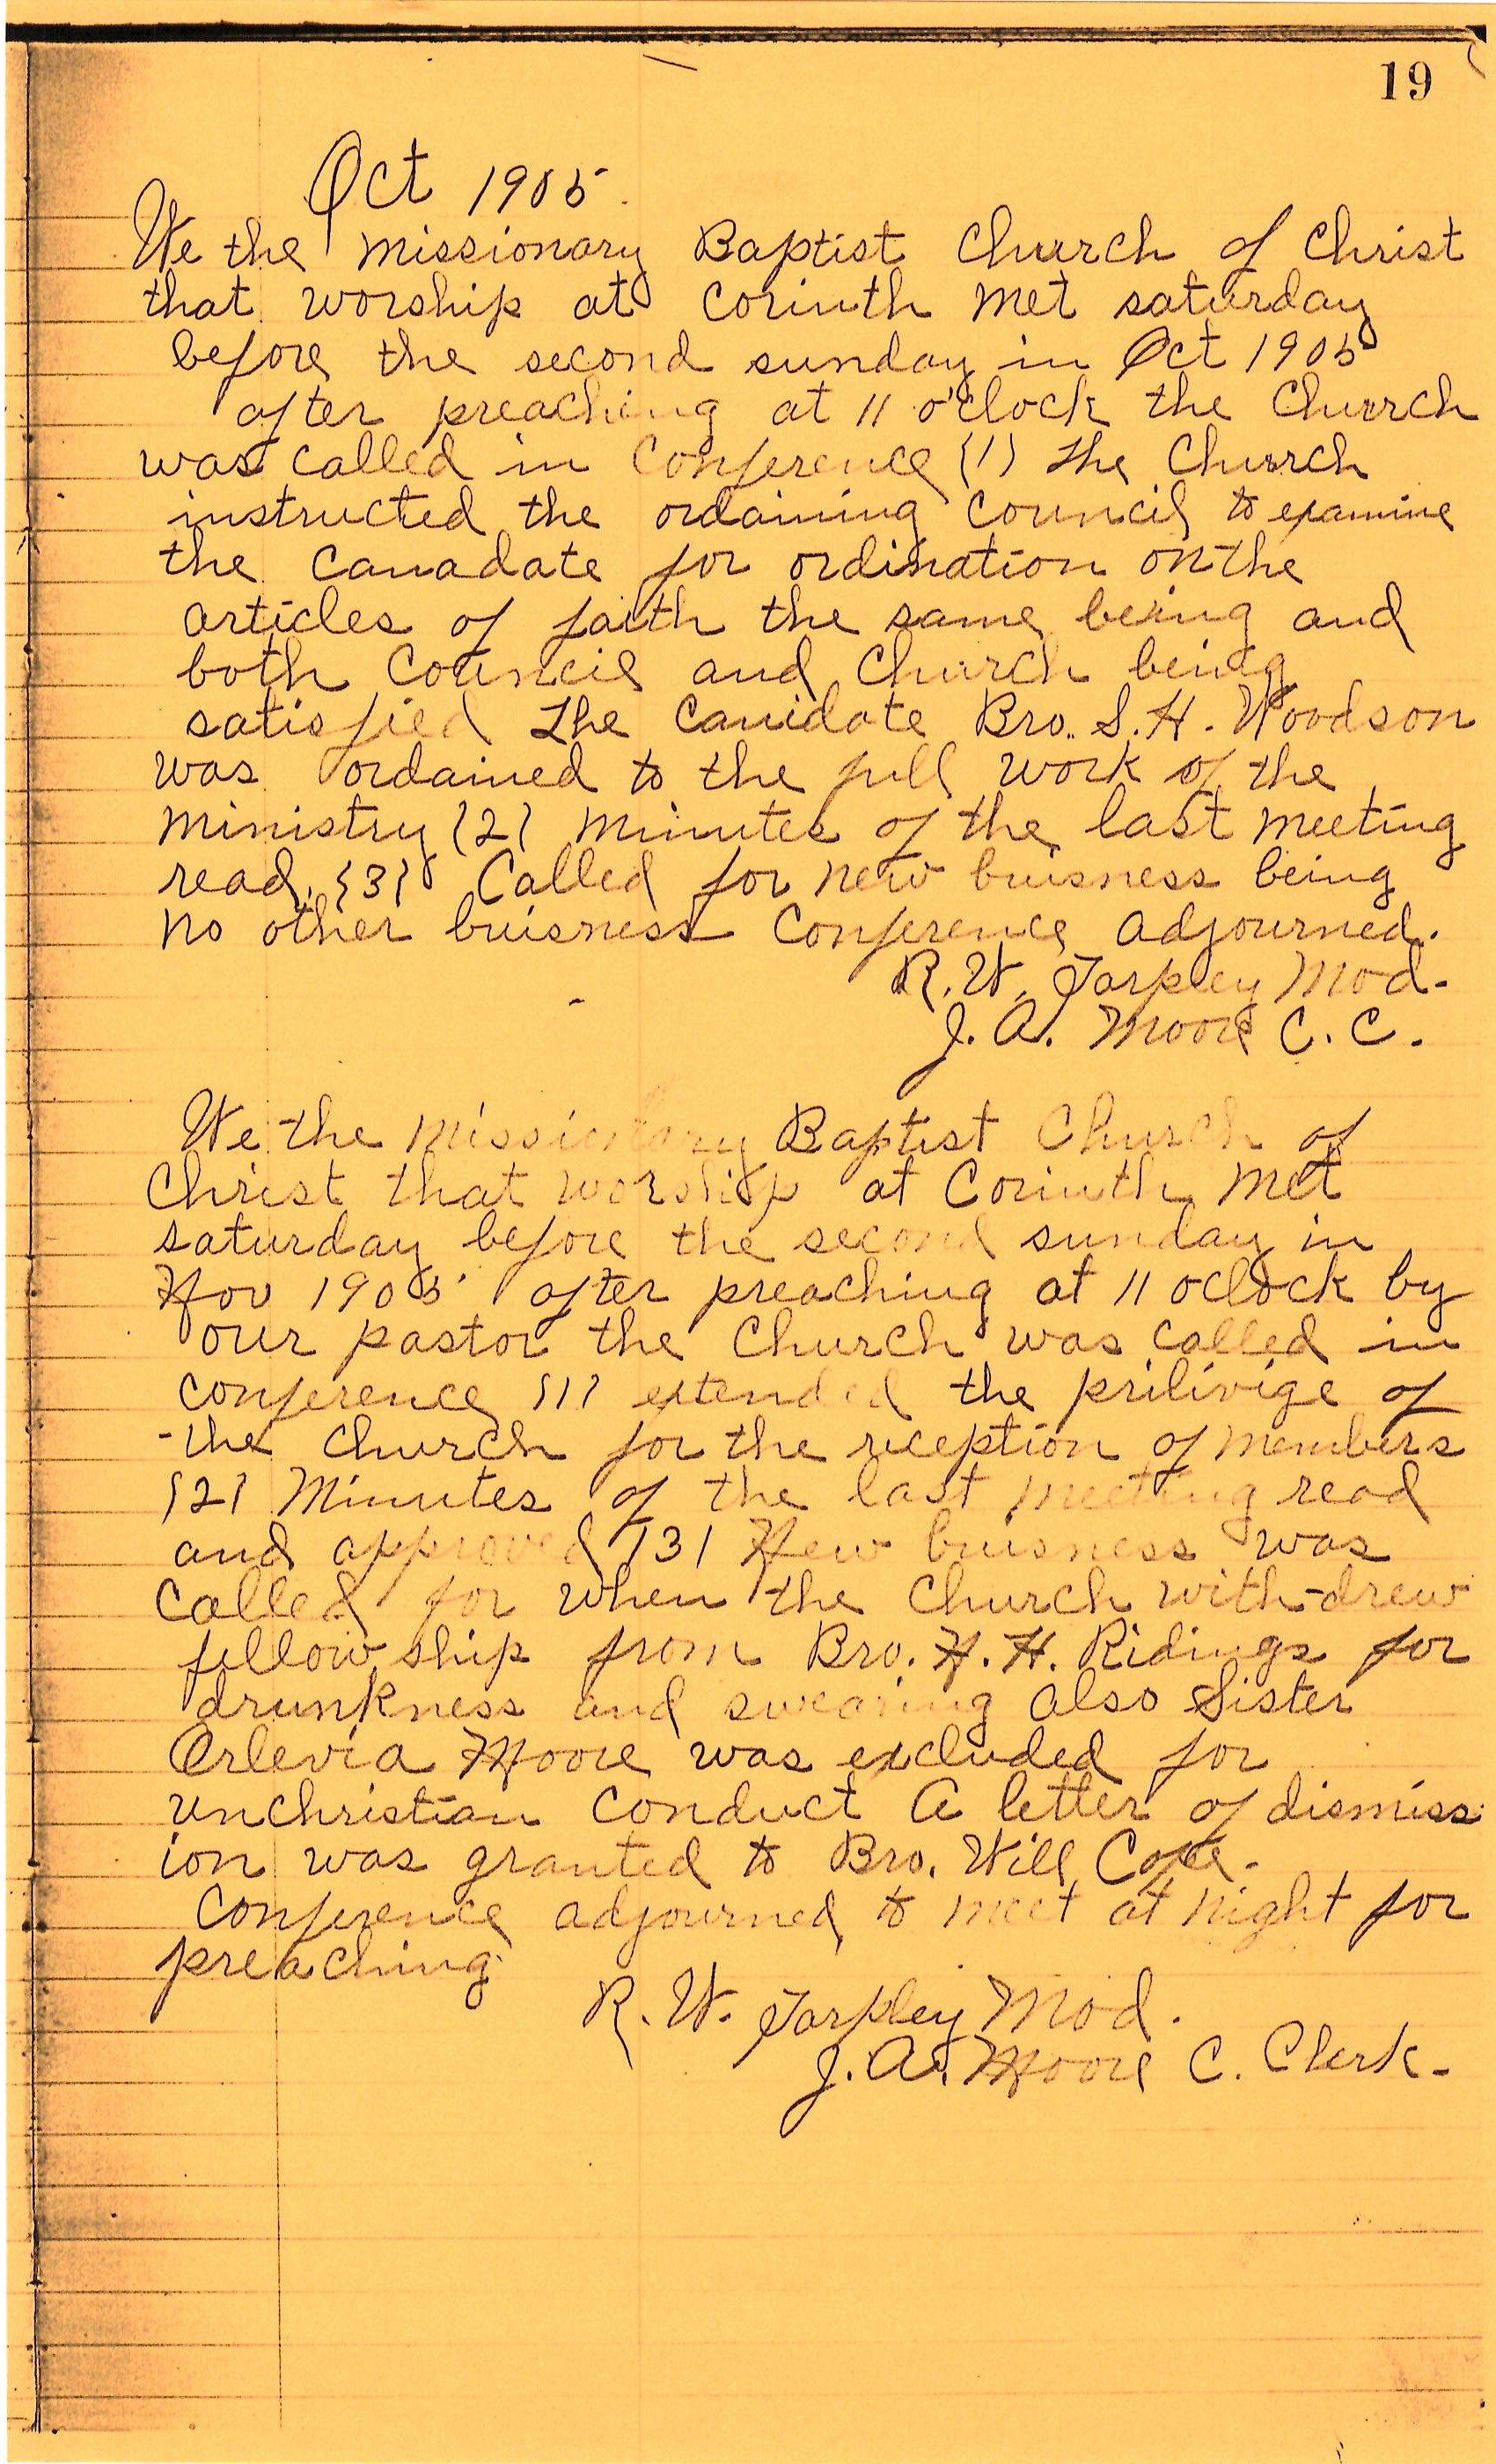 19
Oct 1905.
We the missionary Baptist Church of Christ
that worship at Corinth met saturday
before the second sunday in Oct 1905
after preaching at 11 o'clock the Church
was called in Conference {1} the Church
instructed the ordaining Council to examine
the Canadate for ordination on the
articles of faith the same being and
both Council and Church being
satisfied the Canidate Bro. S. H. Woodson
was ordained to the full work of the
ministry {2} minutes of the last meeting
read. {3} Called for new buisness being
no other buisness Conference adjourned.
R. W. Tarpley Mod.
J. A. Moore C. C.
We the missionary Baptist Church of
Christ that worship at Corinth met
saturday before the second sunday in
Nov 1905 after preaching at 11 oclock by
our pastor the Church was called in
conference {1} extended the prilivige of
the church for the reception of members
{2} Minutes of the last meeting read
and approved {3} New buisness was
called for when the Church with-drew
fellowship from Bro. H. H. Ridings for
drunkness and swearing also Sister
Orlevia Moore was excluded for
unchristian conduct A letter of dismiss
ion was granted to Bro. Will Cope.
Conference adjourned to meet at night for
preaching
R. W. Tarpley Mod.
J. A. Moore C. Clerk.